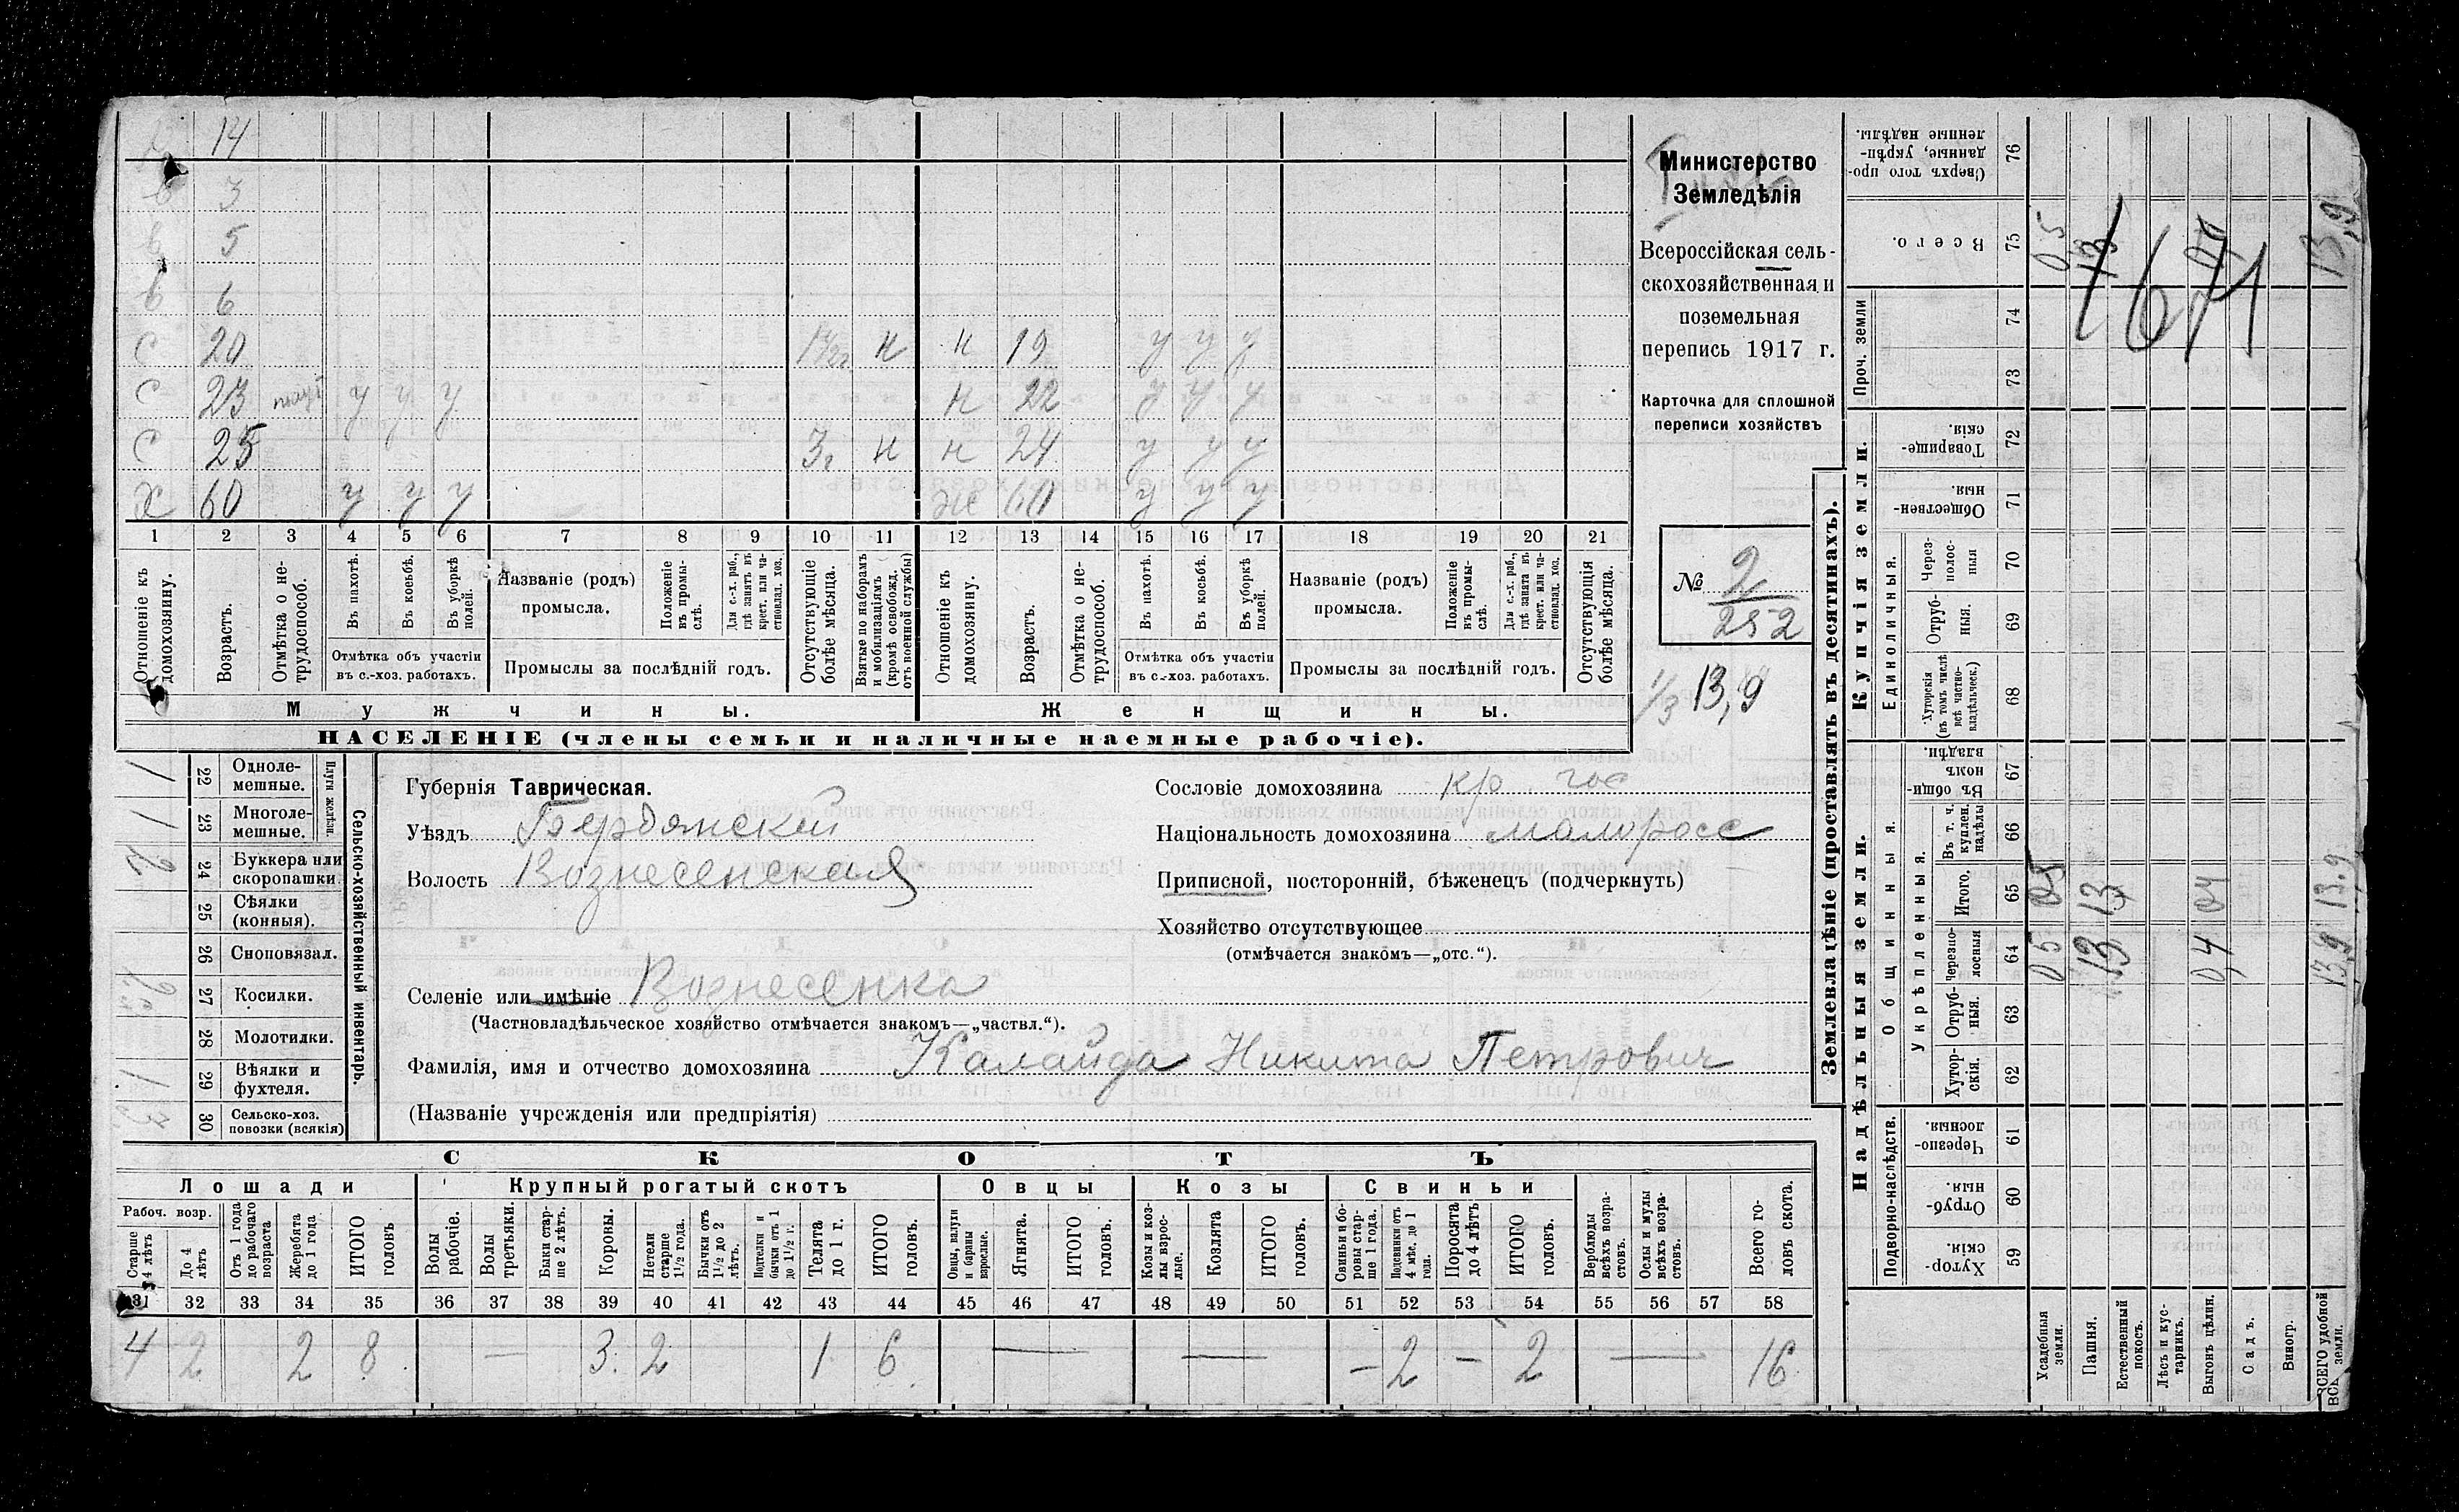 14
в 3
в 5
в 6
с 20 н н 19 у у у
с 23 у у у н 22 у у у
с 25 3 г н н 24 у у у
х 60 у у у ж 60 у у у
1 2 3 4 5 6 7 8 9 10 11 12 13 14 15 16 17 18 19 20 21
Отношеніе къ домохозяину.
Возрастъ.
Отмѣтка о не-
трудоспособ.
Въ пахотѣ.
Въ косьбѣ.
Въ уборкѣ
полей.
Отмѣтка объ участіи
въ с.-хоз. работахъ.
Названіе (родъ)
промысла.
Положеніе
въ промы-
слѣ.
Для с.-х. раб.,
гдѣ занятъ въ
крест. или ча-
стновлад. хоз.
Промыслы за послѣдній годъ.
Отсутствующіе
болѣе мѣсяца.
Взятые по наборамъ
и мобилизаціямъ
(кромѣ освобожд.
отъ военной службы)
Отношеніе къ
домохозяину.
Возрастъ.
Отмѣтка о не-
трудоспособ.
Въ пахотѣ.
Въ косьбѣ.
Въ уборкѣ
полей.
Отмѣтка объ участіи
въ с.-хоз. работахъ.
Названіе (родъ)
промысла.
Положеніе
въ промы-
слѣ.
Для с.-х. раб.,
гдѣ занята въ
крест. или ча-
стновлад. хоз.
Промыслы за послѣдній годъ.
Отсутствующія
болѣе мѣсяца.
Мужчины.
Женщины.
НАСЕЛЕНІЕ (члены семьи и наличные наемные рабочіе).
Министерство
Земледѣлія
Всероссійская сель-
скохозяйственная и
поземельная
перепись 1917 г.
Карточка для сплошной
переписи хозяйствъ
№ 2
252
1/3 13,9
Сельско-хозяйственный инвентарь.
Плуги желѣзн.
22 Одноле-
мешные.
1
23 Многоле-
мешные.
1
24 Буккера или
скоропашки
25 Сѣялки
(конныя).
26 Сноповязал.
27 Косилки.
28 Молотилки.
29 Вѣялки и
фухтеля.
1
30 Сельско-хоз.
повозки (всякія)
3
Губернія Таврическая.
Уѣздъ Бердянский
Волость Вознесенская
Сословіе домохозяина кр. гос
Національность домохозяина малоросс
Приписной, посторонній, бѣженецъ (подчеркнуть)
Хозяйство отсутствующее
(отмѣчается знакомъ—„отс.“).
Селеніе или имѣніе Вознесенка
(Частновладѣльческое хозяйство отмѣчается знакомъ—„частвл.“).
Фамилія, имя и отчество домохозяина Калайда Никита Петрович
(Названіе учрежденія или предпріятія)
СКОТЪ
Лошади
Крупный рогатый скотъ
Овцы
Козы
Свиньи
Рабоч. возр.
Старше
4 лѣтъ
До 4
лѣтъ
Отъ 1 года
до рабочаго
возраста
Жеребята
до 1 года
ИТОГО
головъ
Волы
рабочіе.
Волы
третьяки.
Быки стар-
ше 2 лѣтъ.
Коровы.
Нетели
старше
1½ года.
Бычки отъ
1½ до 2
лѣтъ.
Подтелки и
бычки отъ 1
до 1½ г.
Телята
до 1 г.
ИТОГО
головъ.
Овцы, валухи
и бараны
взрослые.
Ягнята.
ИТОГО
головъ.
Козы и коз-
лы взрос-
лые.
Козлята
ИТОГО
головъ.
Свиньи и бо-
ровы стар-
ше 1 года.
Подсвинки отъ
4 мѣс. до 1
года.
Поросята
до 4 лѣтъ
ИТОГО
головъ.
Верблюды
всѣхъ возра-
стовъ.
Ослы и мулы
всѣхъ возра-
стовъ.
Всего го-
ловъ скота.
31 32 33 34 35 36 37 38 39 40 41 42 43 44 45 46 47 48 49 50 51 52 53 54 55 56 57 58
4 2 2 8 — 3 2 1 6 — — — 2 — 2 — 16
Землевладѣніе (проставлять въ десятинахъ).
Купчія земли.
Надѣльныя земли.
76 Сверхъ того про-
данные, укрѣп-
ленные надѣлы.
75 Всего.
0,5 13 0,4 13,9
1671
Проч. земли
74
73
72 Товарище-
скія.
71 Обществен-
ныя.
Единоличныя.
70 Через-
полос-
ныя
69 Отруб-
ныя.
68 Хуторскія
(въ томъ числѣ
всѣ частно-
владѣльческ.)
Общинныя.
67 Въ общин-
номъ
владѣн.
Укрѣпленныя.
66 Въ т. ч.
куплен.
надѣлы
65 Итого.
0,5 13 0,4 13,9
64 Черезпо-
лосныя
0,5 13 0,4 13,9
63 Отруб-
ныя.
62 Хутор-
скія.
Подворно-наслѣдств.
61 Черезпо-
лосныя.
60 Отруб-
ныя.
59 Хутор-
скія.
Усадебныя
земли.
Пашня.
Естественный
покосъ.
Лѣсъ и кус-
тарникъ.
Выгонъ цѣлин.
Садъ.
Виногр.
ВСЕГО удобной
земли.